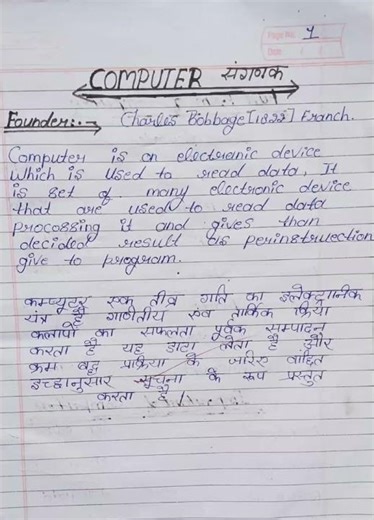 Page No. 1
Date
COMPUTER संगणक
Founder:- → Charles Bobbage [1822] Franch.
Computer is an electronic device
which is used to read data, It
is set of many electronic device
that are used to read data
procossing it and gives than
decided result as perinstruection
give to program.
कम्प्यूटर एक तीव्र गति का इलेक्ट्रानिक
यंत्र है गाठीतीय एवं तार्किक क्रिया
कलापो का सफलता पूर्वक सम्पादन
करता है यह डाटा लेता है और
क्रम बद्ध प्रक्रिया के जरिए वांछित
इच्छानुसार सूचना के रूप प्रस्तुत
करता है